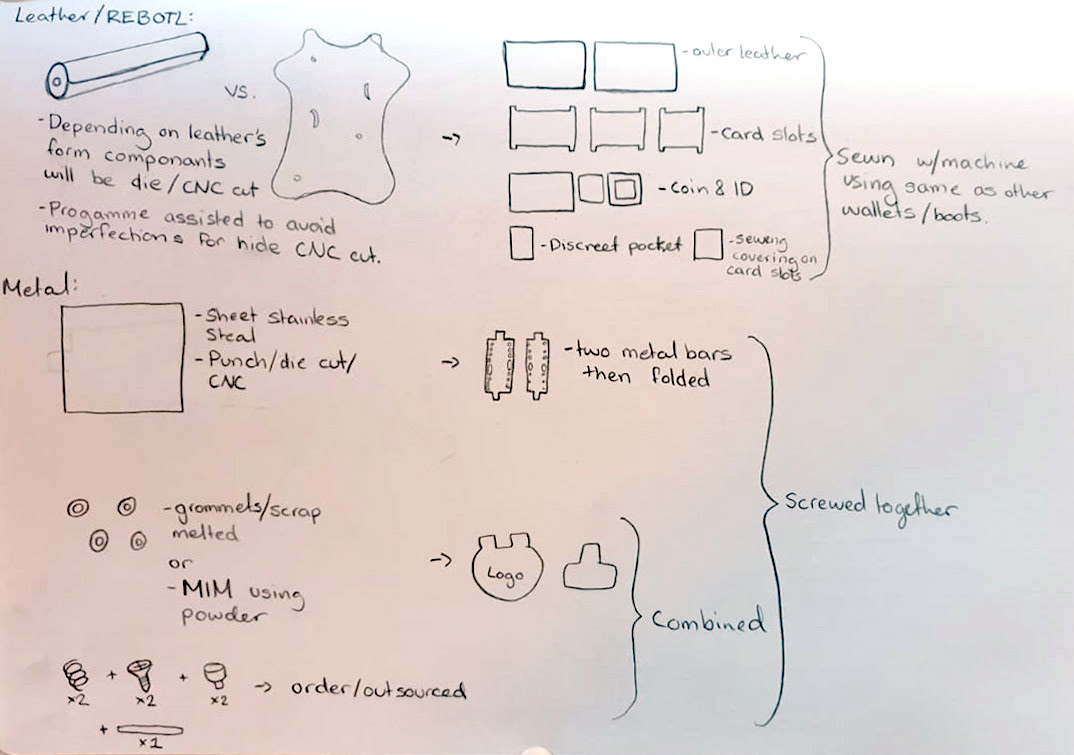 Leather/REBOTL:
vs.
-Depending on leather's
form componants
will be die/CNC cut
-Progamme assisted to avoid
imperfections for hide CNC cut.
->
-outer leather
-card slots
-coin & ID
-Discreet pocket
-sewing
covering on
card slots
Sewn w/machine
using same as other
wallets/boots.
Metal:
-Sheet stainless
Steal
-Punch/die cut/
CNC
->
-two metal bars
then folded
-grommets/scrap
melted
or
-MIM using
powder
->
Logo
Combined
Screwed together
x2
+
x2
+
x2
-> order/outsourced
+
x1